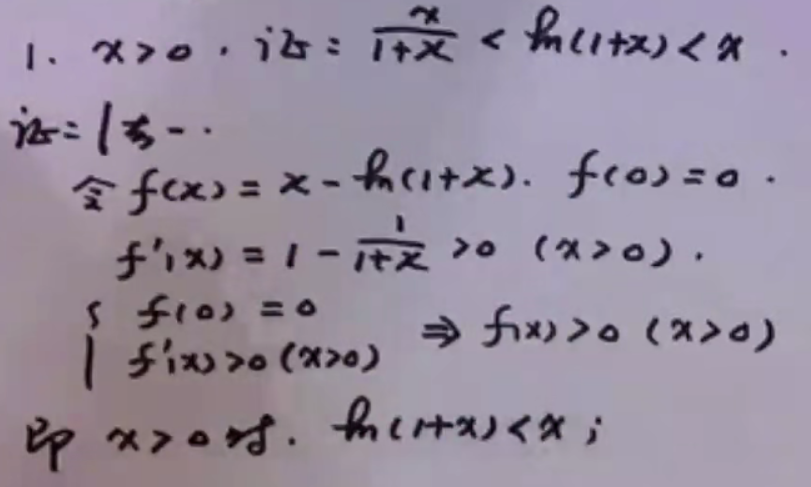 1. x>0. 证: x/(1+x) < ln(1+x) < x.
证: 1° 方一..
令 f(x) = x - ln(1+x). f(0) = 0.
f'(x) = 1 - 1/(1+x) >0 (x>0).
{ f(0) = 0
f'(x)>0 (x>0) ⇒ f(x)>0 (x>0)
即 x>0时. ln(1+x)<x;